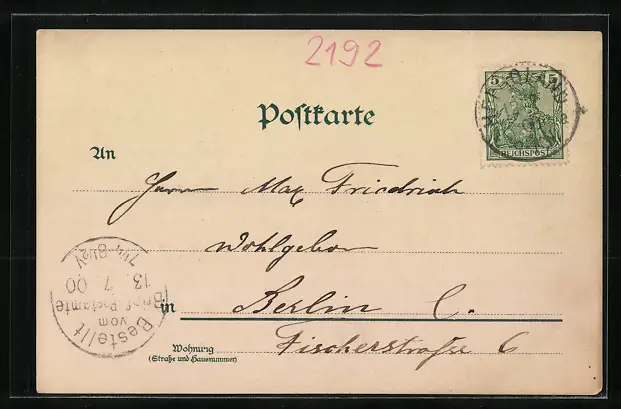 2192
5 5
REICHSPOST
Postkarte
An
Herrn Max Friedrich
Wohlgeboren
in Berlin C.
Wohnung
(Straße und Hausnummer)
Fischerstraße 6
Bestellt
vom
Brief-Postamte
13. 7. 00
7¼-8½V